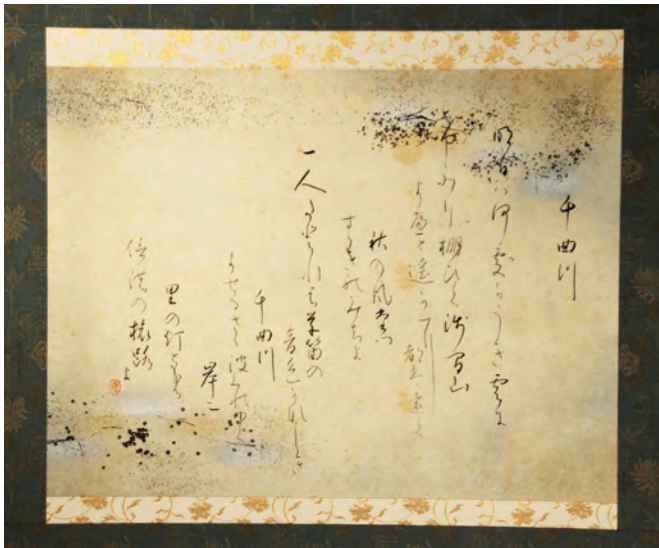 千曲川
明日は何処かうき雲に
けぶり棚びく浅間山
よべど遥かに
都は遠く
秋の風立つ
すすきのみちよ
一人たどれば草笛の
音色かなしき
千曲川
よせるさざ波くれゆく
岸に
里の灯ともる
信濃の旅路
よ